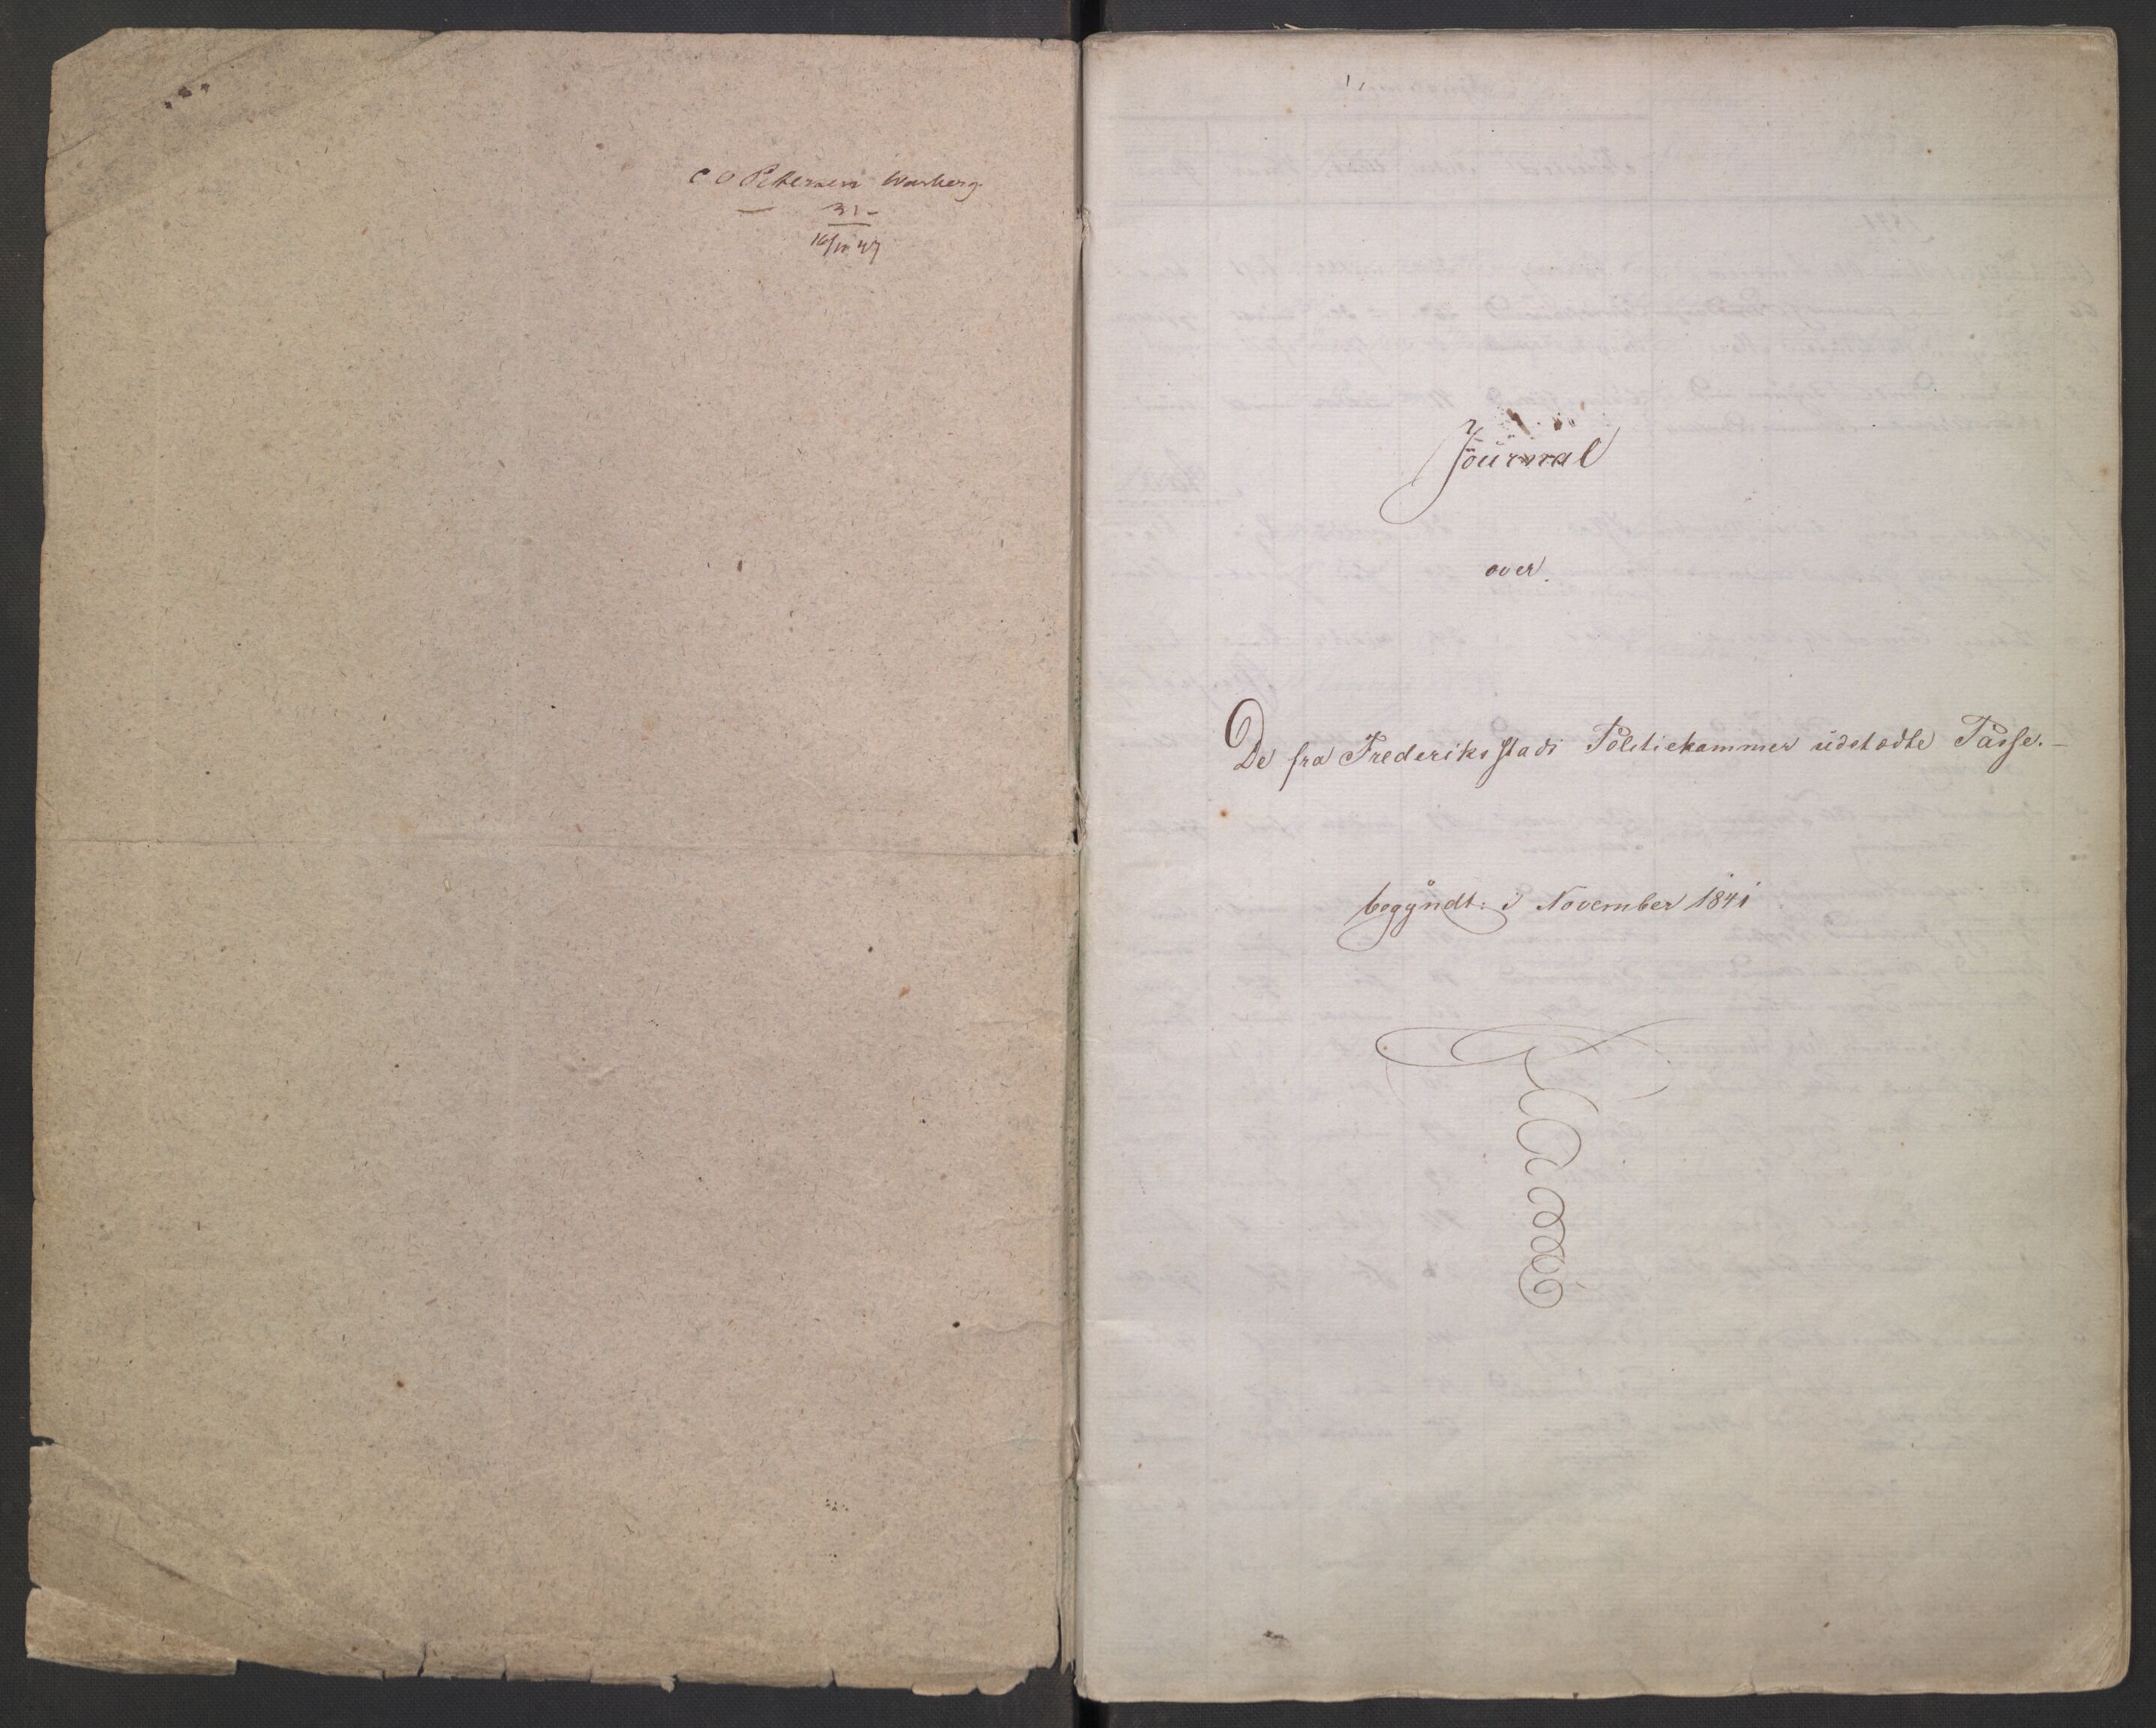 C O Pettersen Warberg
31 -
16/10 47
Journal
over.
De fra Frederiksstads Politiekammer üdstædte Passe. –
begÿndt: i November 1841